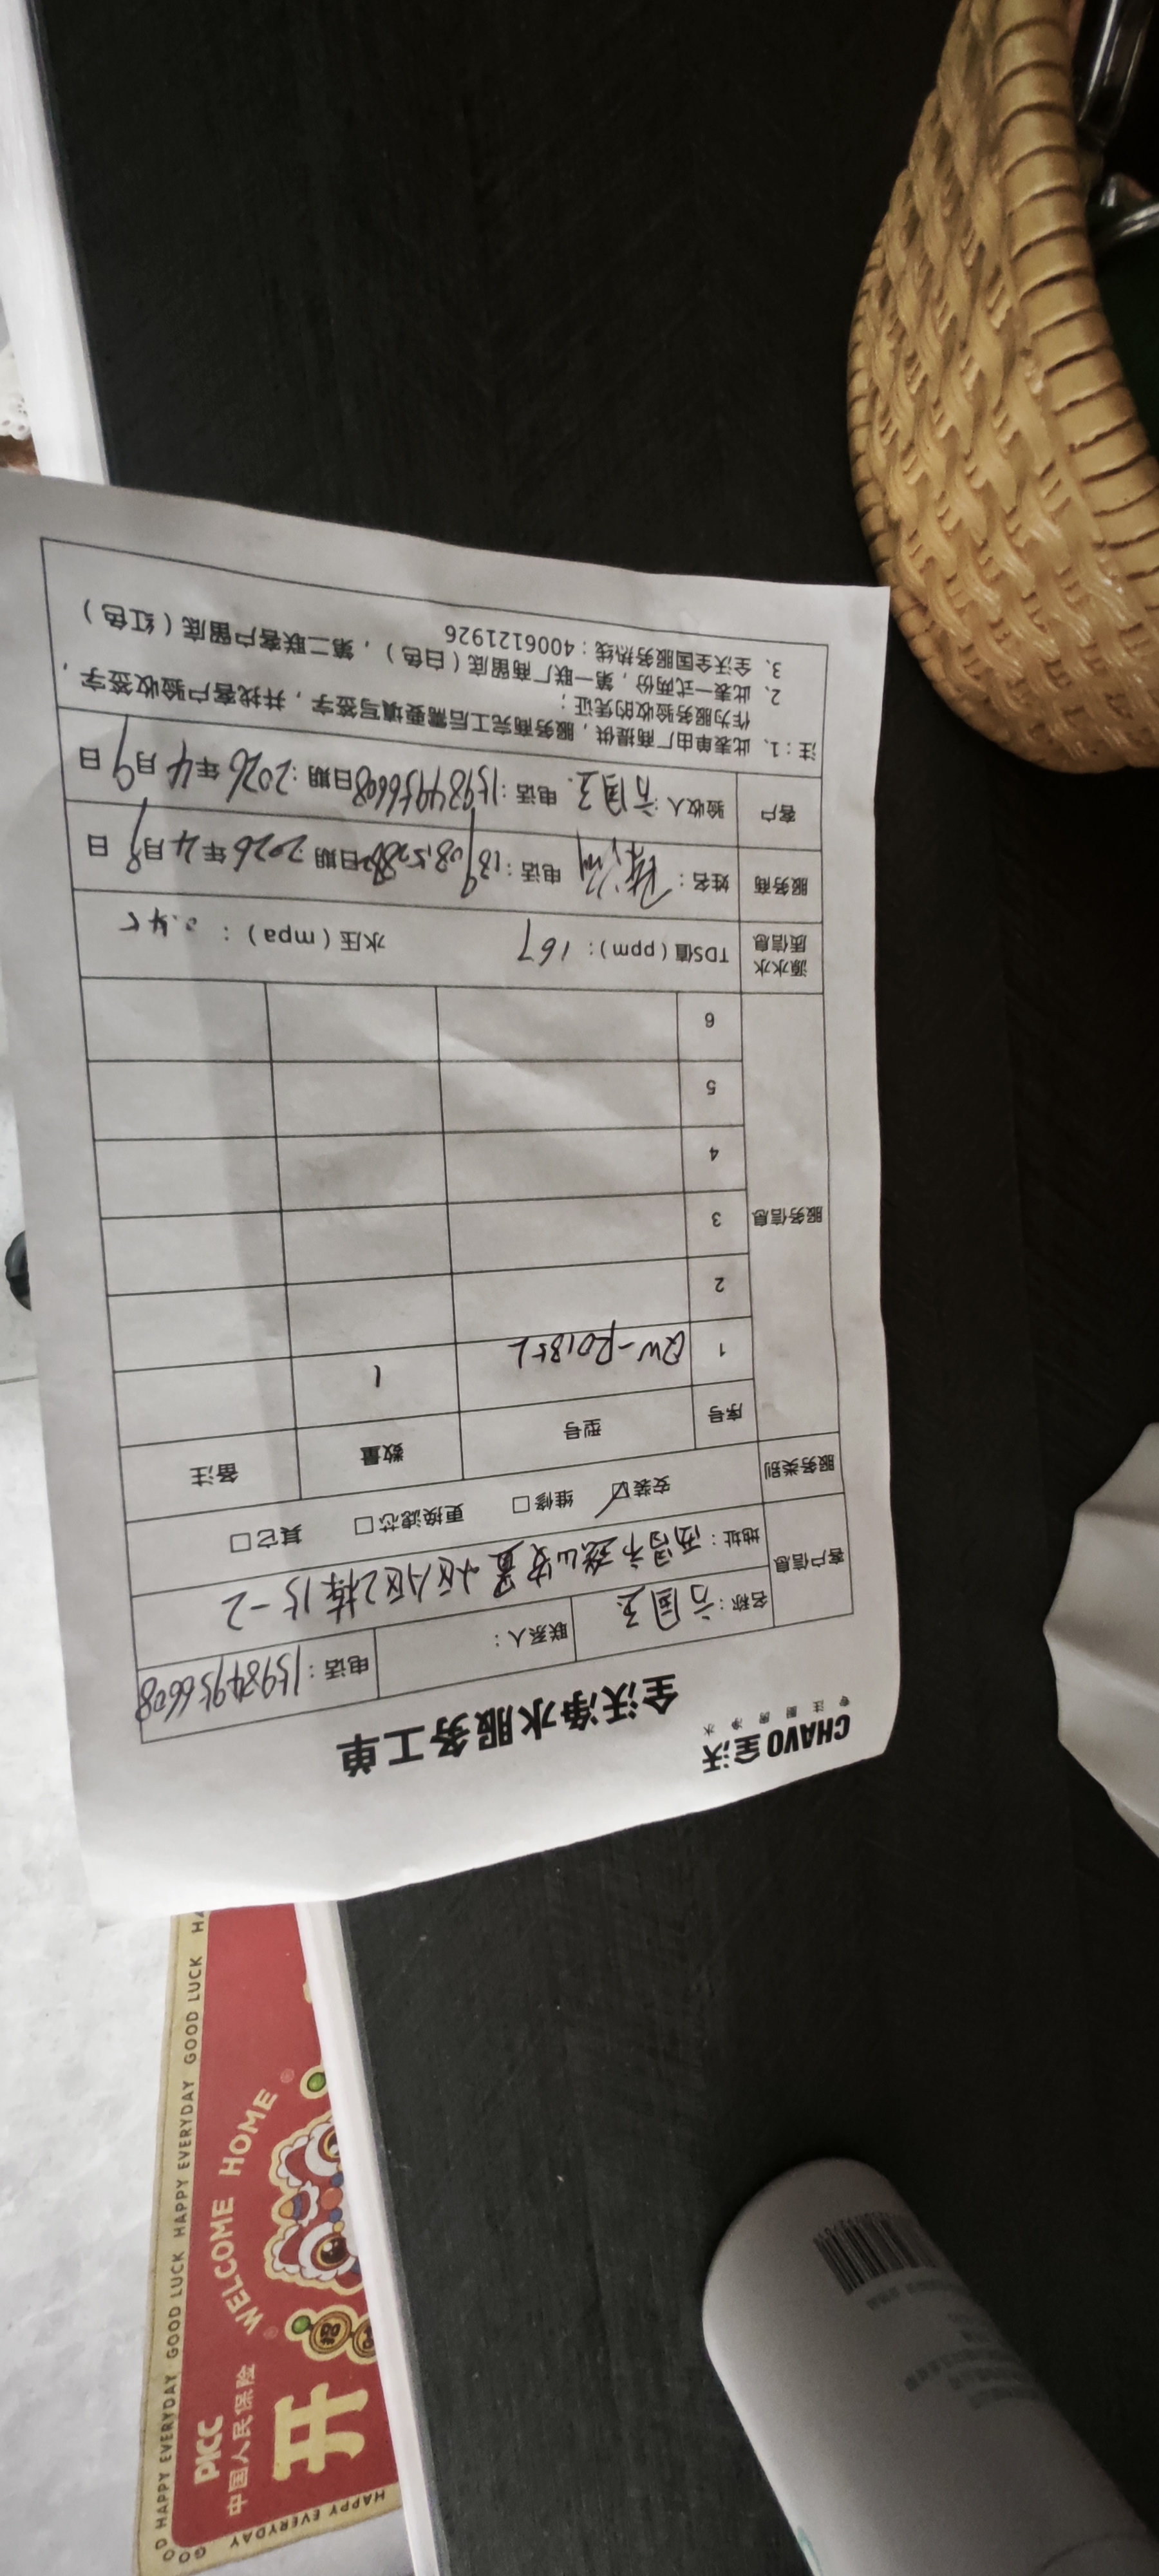 CHAVO全沃
专注厨房净水
全沃净水服务工单
客户信息
名称：方国玉
联系人：
电话：15984956608
地址：西昌市 安置小区A区2栋15-2
服务类别
安装☑ 维修□ 更换滤芯□ 其它□
服务信息
序号 型号 数量 备注
1 QW-RO185L 1
2
3
4
5
6
源水水质信息
TDS值（ppm）：167 水压（mpa）：0.45
服务商 姓名：陈 电话： 日期 2026年4月9日
客户 验收人：方国玉 电话：15984956608 日期：2026年4月9日
注：1、此表单由厂商提供，服务商完工后需要填写签字，并找客户验收签字，
作为服务验收的凭证；
2、此表一式两份，第一联厂商留底（白色），第二联客户留底（红色）
3、全沃全国服务热线：4006121926
PICC
中国人民保险
WELCOME HOME
开
GOOD LUCK
HAPPY EVERYDAY
GOOD LUCK
HAPPY EVERYDAY
HAPPY EVERYDAY